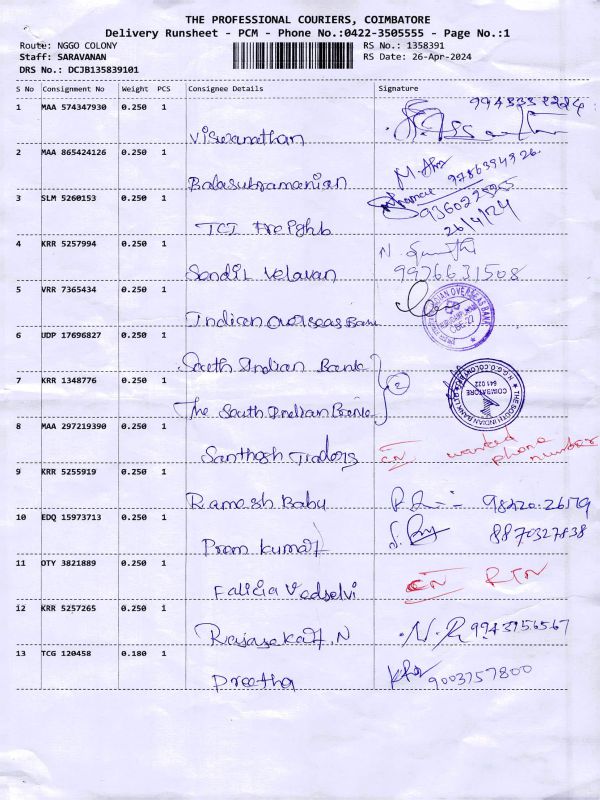 THE PROFESSIONAL COURIERS, COIMBATORE
Delivery Runsheet - PCM - Phone No.:0422-3505555 - Page No.:1
Route: NGGO COLONY
RS No.: 1358391
Staff: SARAVANAN
RS Date: 26-Apr-2024
DRS No.: DCJB135839101
S No Consignment No Weight PCS Consignee Details Signature
1 MAA 574347930 0.250 1
Viswanathan
2 MAA 865424126 0.250 1
Balasubramanian 9786394326.
3 SLM 5260153 0.250 1
26/4/24
TCI Freight
4 KRR 5257994 0.250 1
Sendil Velavan 9976631508
5 VRR 7365434 0.250 1
Indian Overseas Bank
INDIAN OVERSEAS BANK
CBE-22
6 UDP 17696827 0.250 1
South Indian Bank
2
7 KRR 1348776 0.250 1
The South Indian Bank
THE SOUTH INDIAN BANK LTD
N.G.G.O.COLONY
COIMBATORE
641 022
8 MAA 297219390 0.250 1
Santhosh Traders CN wanted phone number
9 KRR 5255919 0.250 1
Ramesh Babu
10 EDQ 15973713 0.250 1
Prem Kumar 8870327838
11 OTY 3821889 0.250 1
Falicia Vadselvi CN RTN
12 KRR 5257265 0.250 1
Rajasekar.N N.R 9943956567
13 TCG 120458 0.180 1
Preetha 9003757800